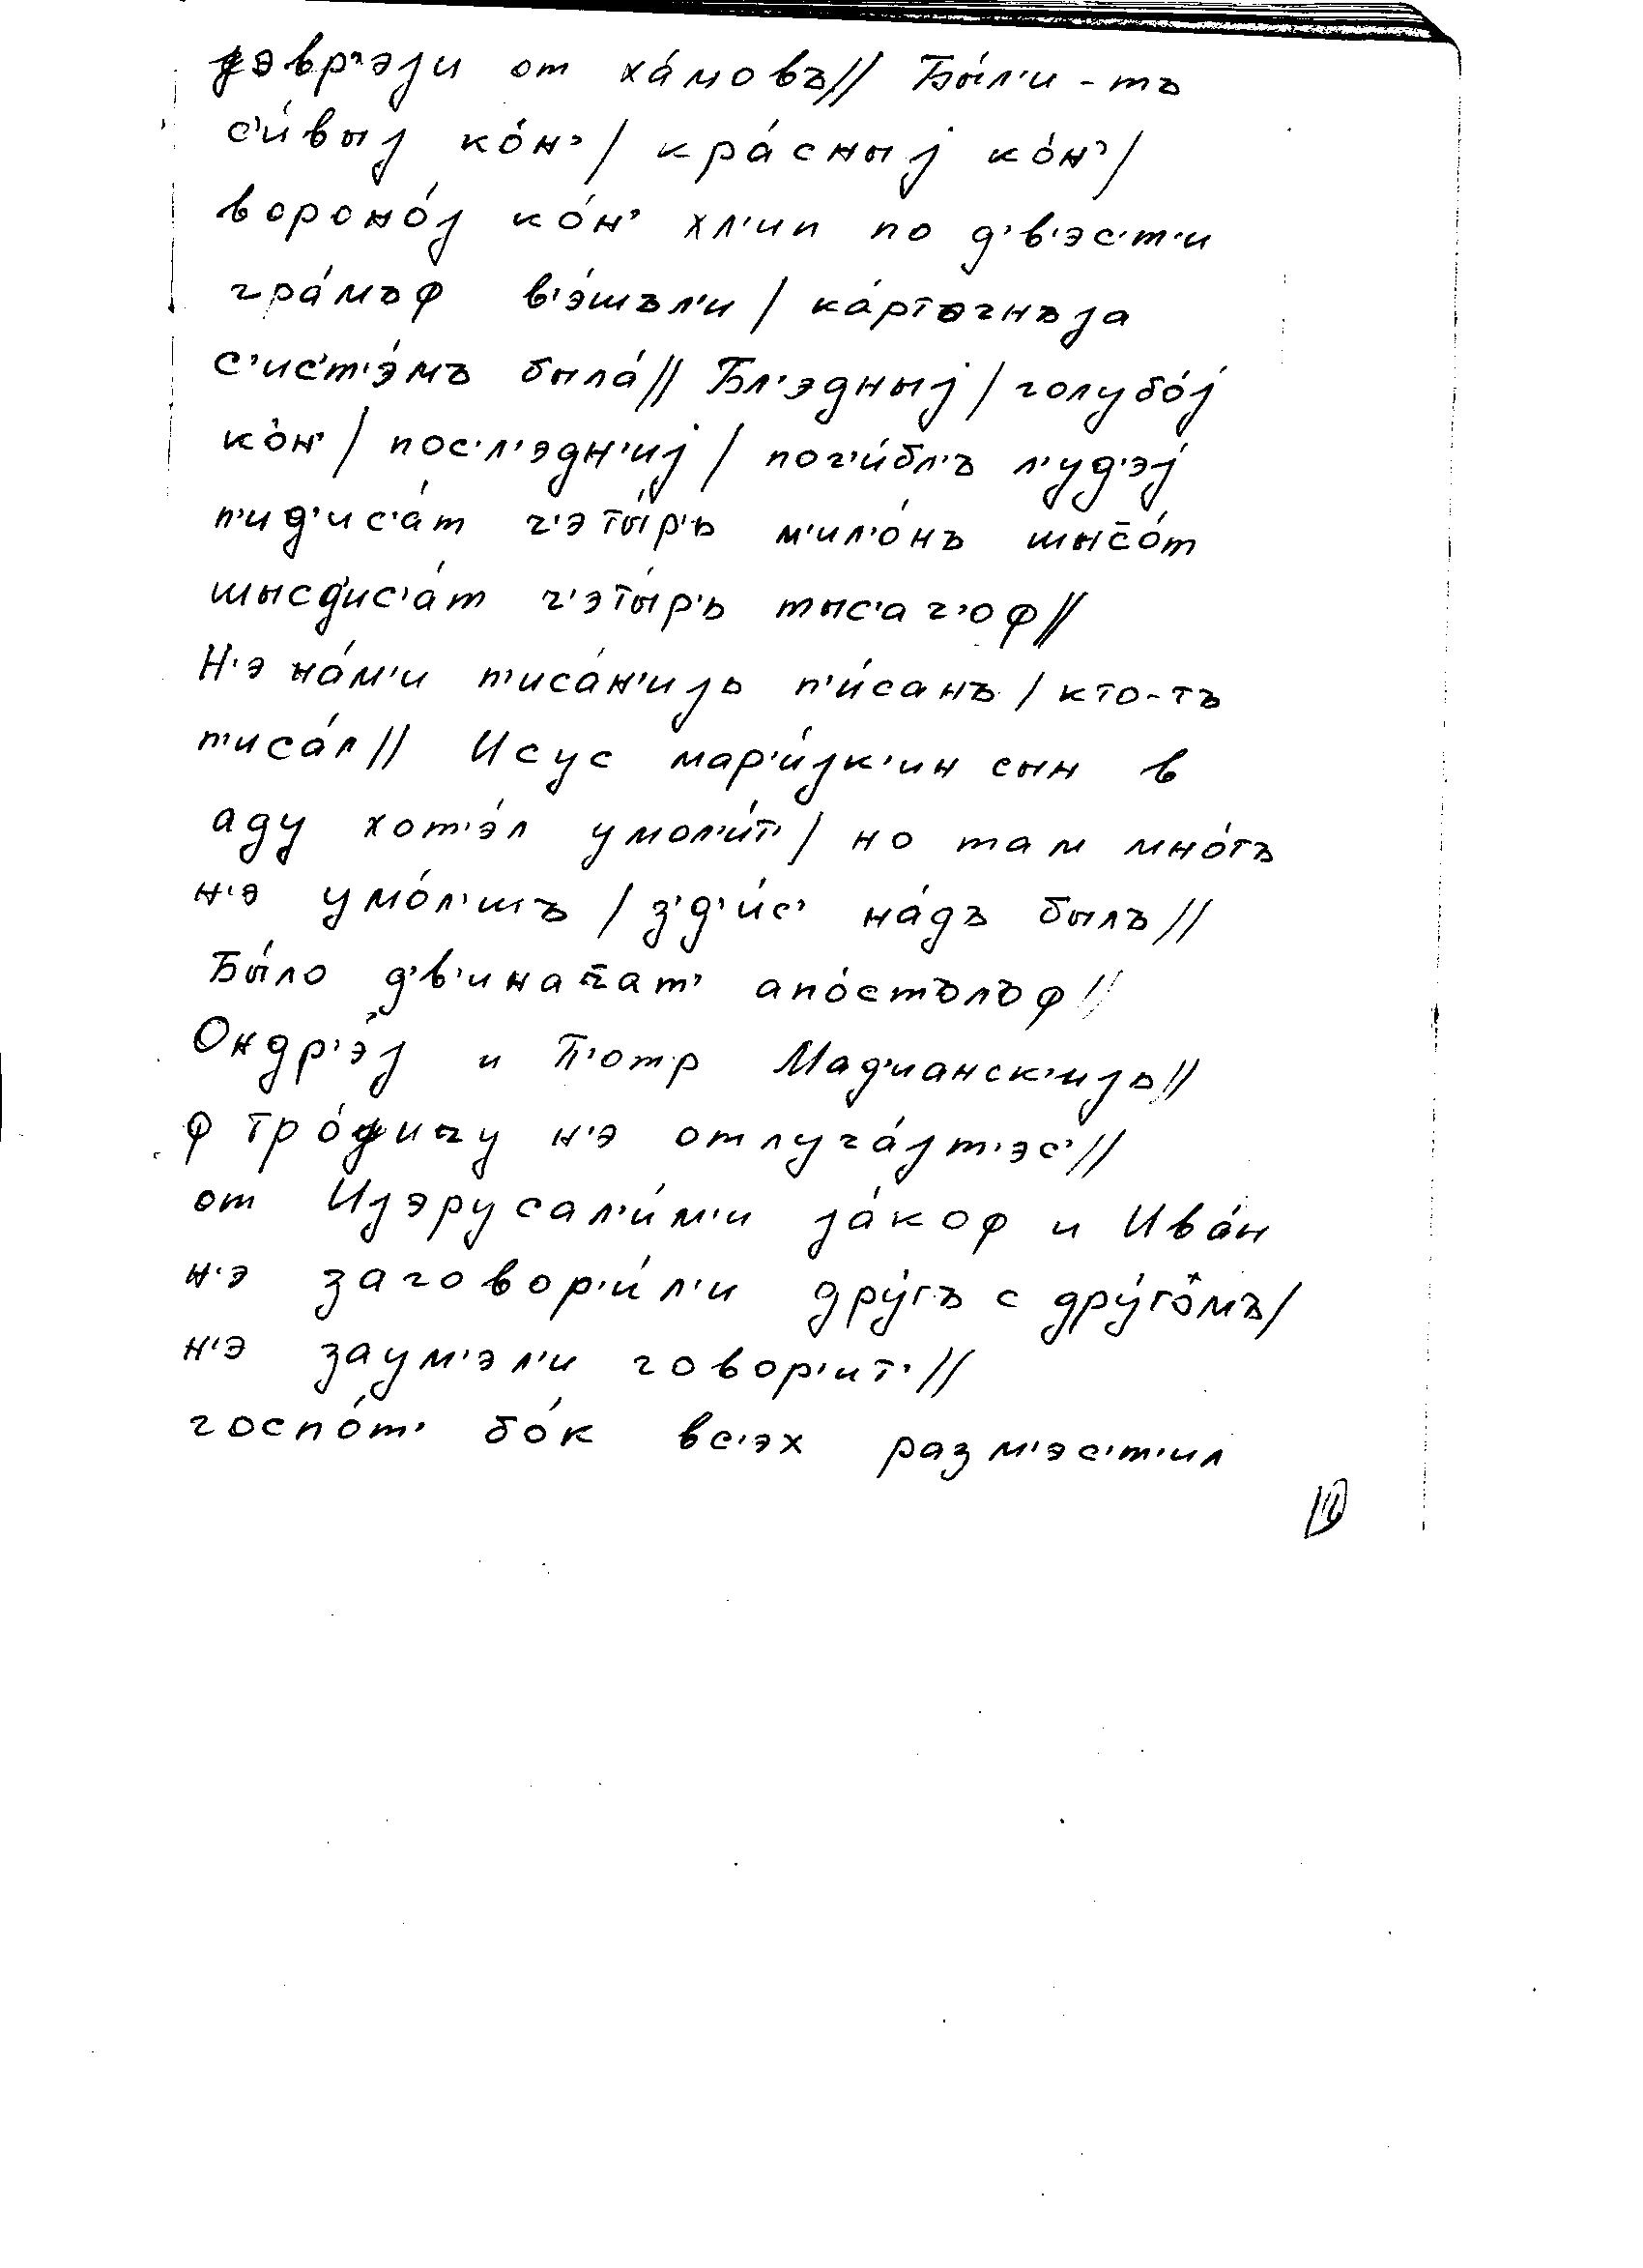 јэвр'эји от ха́мовъ// Бы́л'и-тъ
с'и́выј ко́н'/ кра́сныј ко́н'/
вороно́ј ко́н' хл'ип по д'в'эс'т'и
гра́мъф в'э́шъл'и/ ка́рточнъја
с'ис'т'э́мъ была́// Бл'эдныј/ голубо́ј
ко́н'/ пос'л'эдн'иј/ пог'и́бл'ъ л'уд'э́ј
п'ид'ис'а́т ч'эты́р'ь м'ил'о́нъ шыс̄о́т
шысд'ис'а́т ч'эты́р'ь тыс'ач'оф//
Н'э на́м'и п'иса́н'ијь п'и́санъ/ кто-тъ
п'иса́л// Исус мар'и́јк'ин сын в
аду хот'э́л умол'и́т'/ но там мно́гъ
н'э умо́л'иш/ з'д'и́с' на́дъ былъ//
Бы́ло д'в'инац̄ат' апо́стълъф//
Ондр'э́ј и П'отр Мад'ианск'ијь//
ф тро́ицу н'э отлуча́јт'эс'//
от Ијэрусал'и́м'и ја́коф и Ива́н
н'э заговор'и́л'и дру́гъ с дру́гômъ/
н'э заум'эл'и говор'ит'//
госпо́т' бо́к вс'эх разм'эс'т'ил